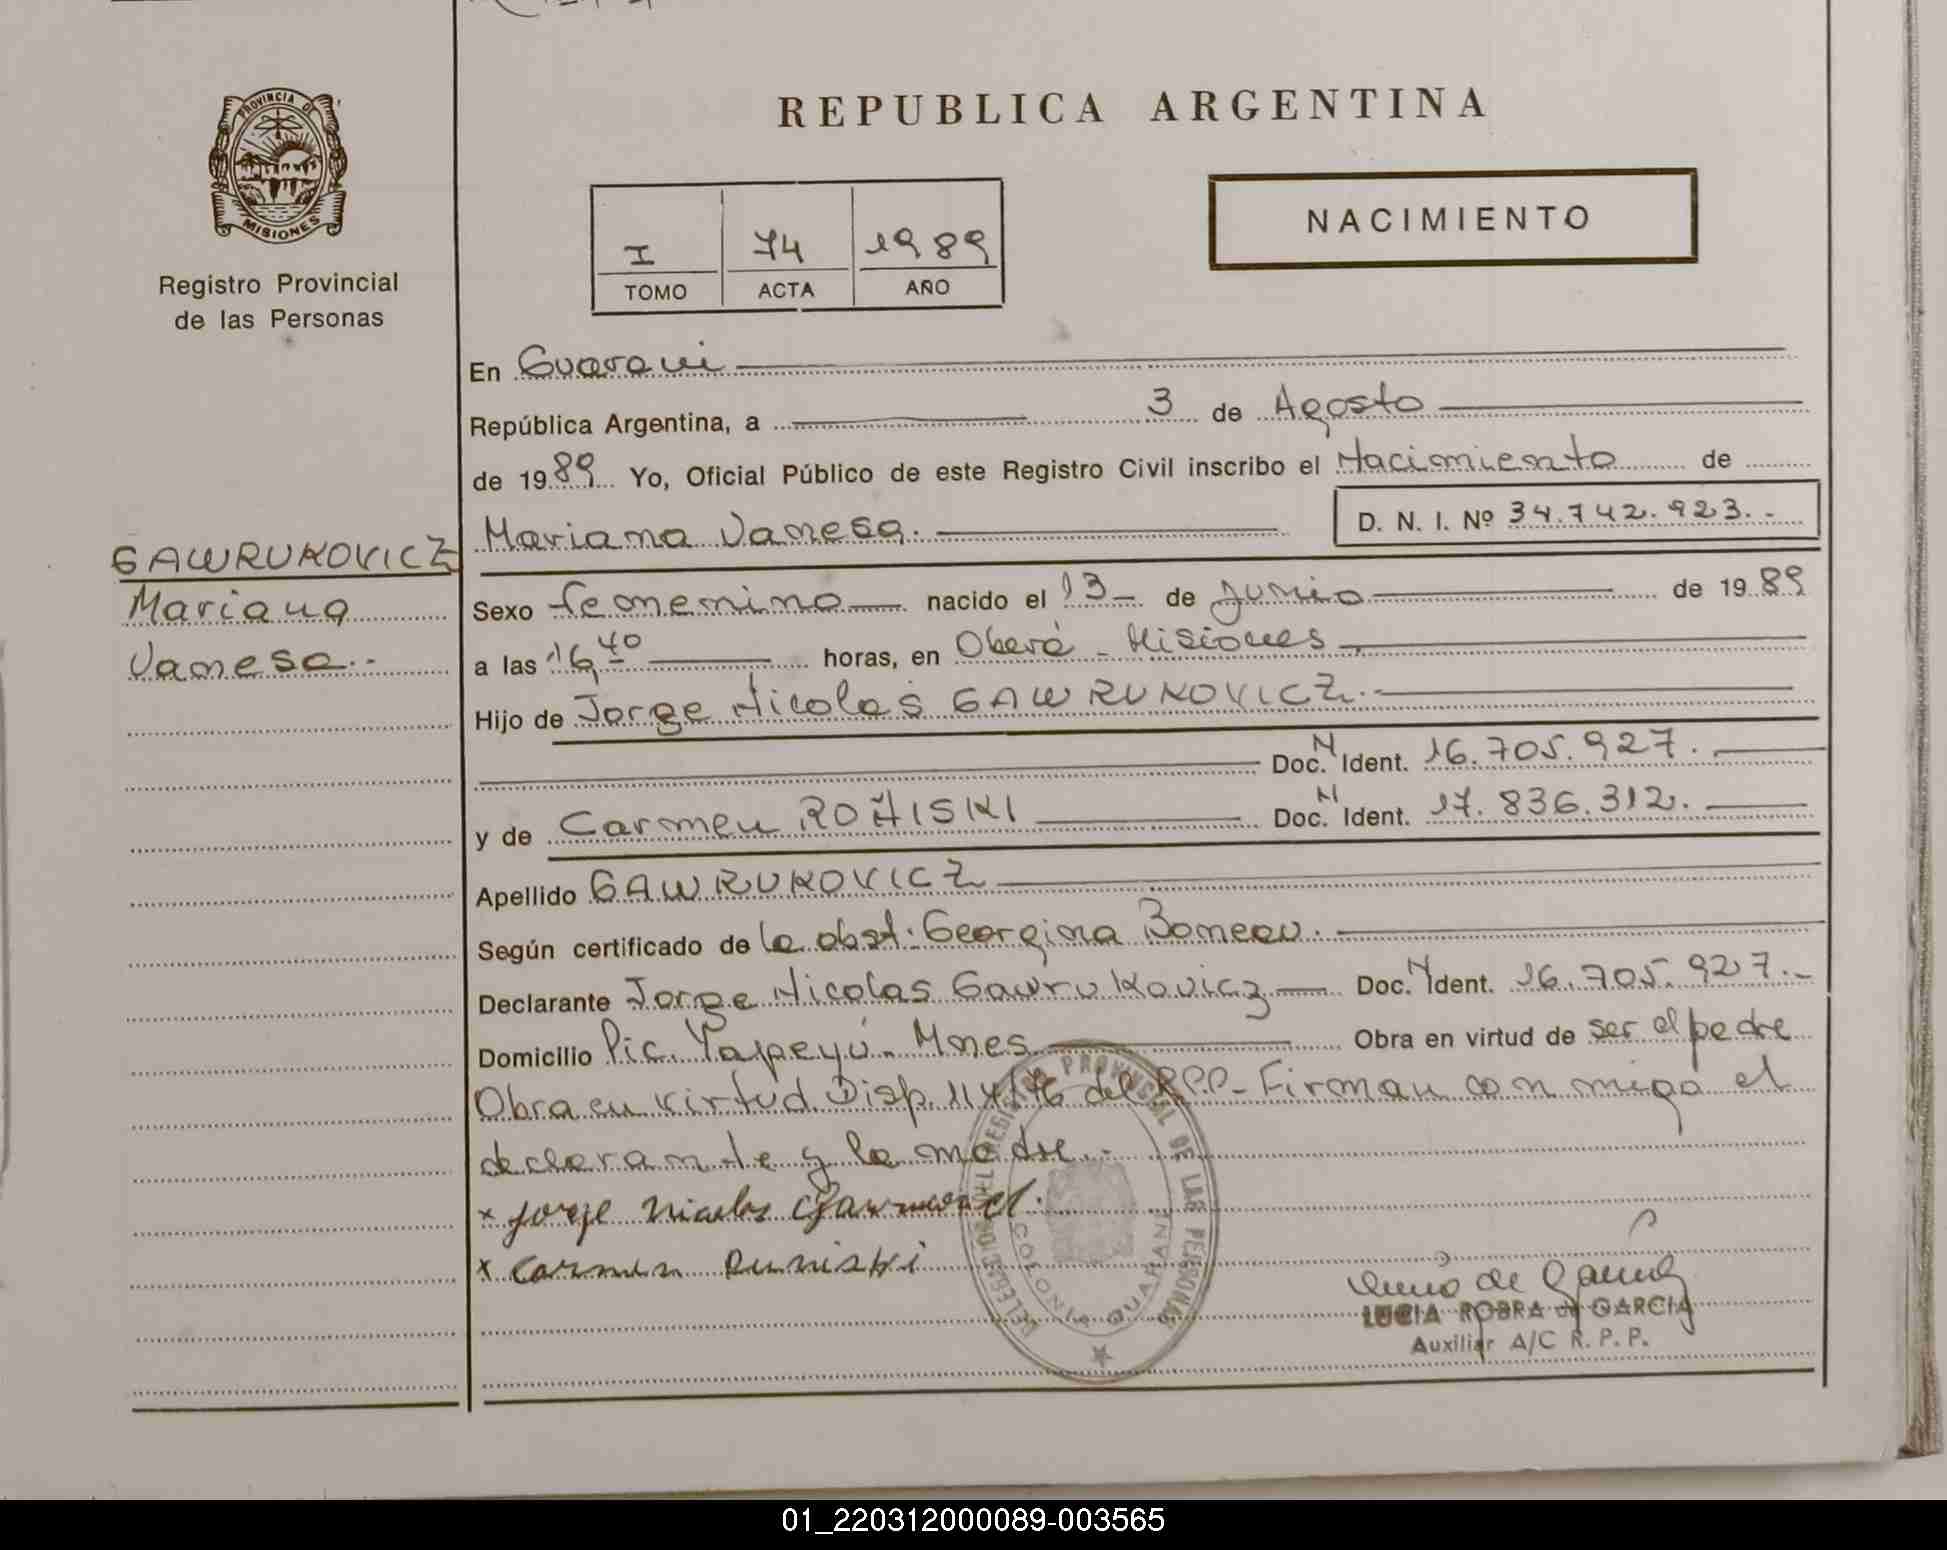 PROVINCIA DE
MISIONES
Registro Provincial
de las Personas
REPUBLICA ARGENTINA
NACIMIENTO
I 74 1989
TOMO ACTA AÑO
En Guarani
República Argentina, a 3 de Agosto
de 1989 Yo, Oficial Público de este Registro Civil inscribo el Nacimiento de
Mariana Vanesa. D. N. I. Nº 34.742.923.-
GAWRUKOVICZ
Mariana
Vanesa.-
Sexo femenino nacido el 13 de Junio de 1989
a las 16,40 horas, en Oberá - Misiones
Hijo de Jorge Nicolas GAWRUKOVICZ.-
Doc. N Ident. 16.705.927.
y de Carmen ROÑISKI Doc. N Ident. 17.836.312.
Apellido GAWRUKOVICZ
Según certificado de la obst. Georgina
Declarante Jorge Nicolas Gawrukovicz Doc. N Ident. 16.705.927.-
Domicilio Pic. Yapeyú - Mnes Obra en virtud de ser el padre
Obra en virtud Disp. 114/76 del RPP - Firman con migo el
declarante y la madre.-
x Jorge Nicolas
x Carmen
DELEGACION DEL REGISTRO PROVINCIAL DE LAS PERSONAS
COLONIA GUARANI
LUCIA ROBRA de GARCIA
Auxiliar A/C R. P. P.
01_220312000089-003565